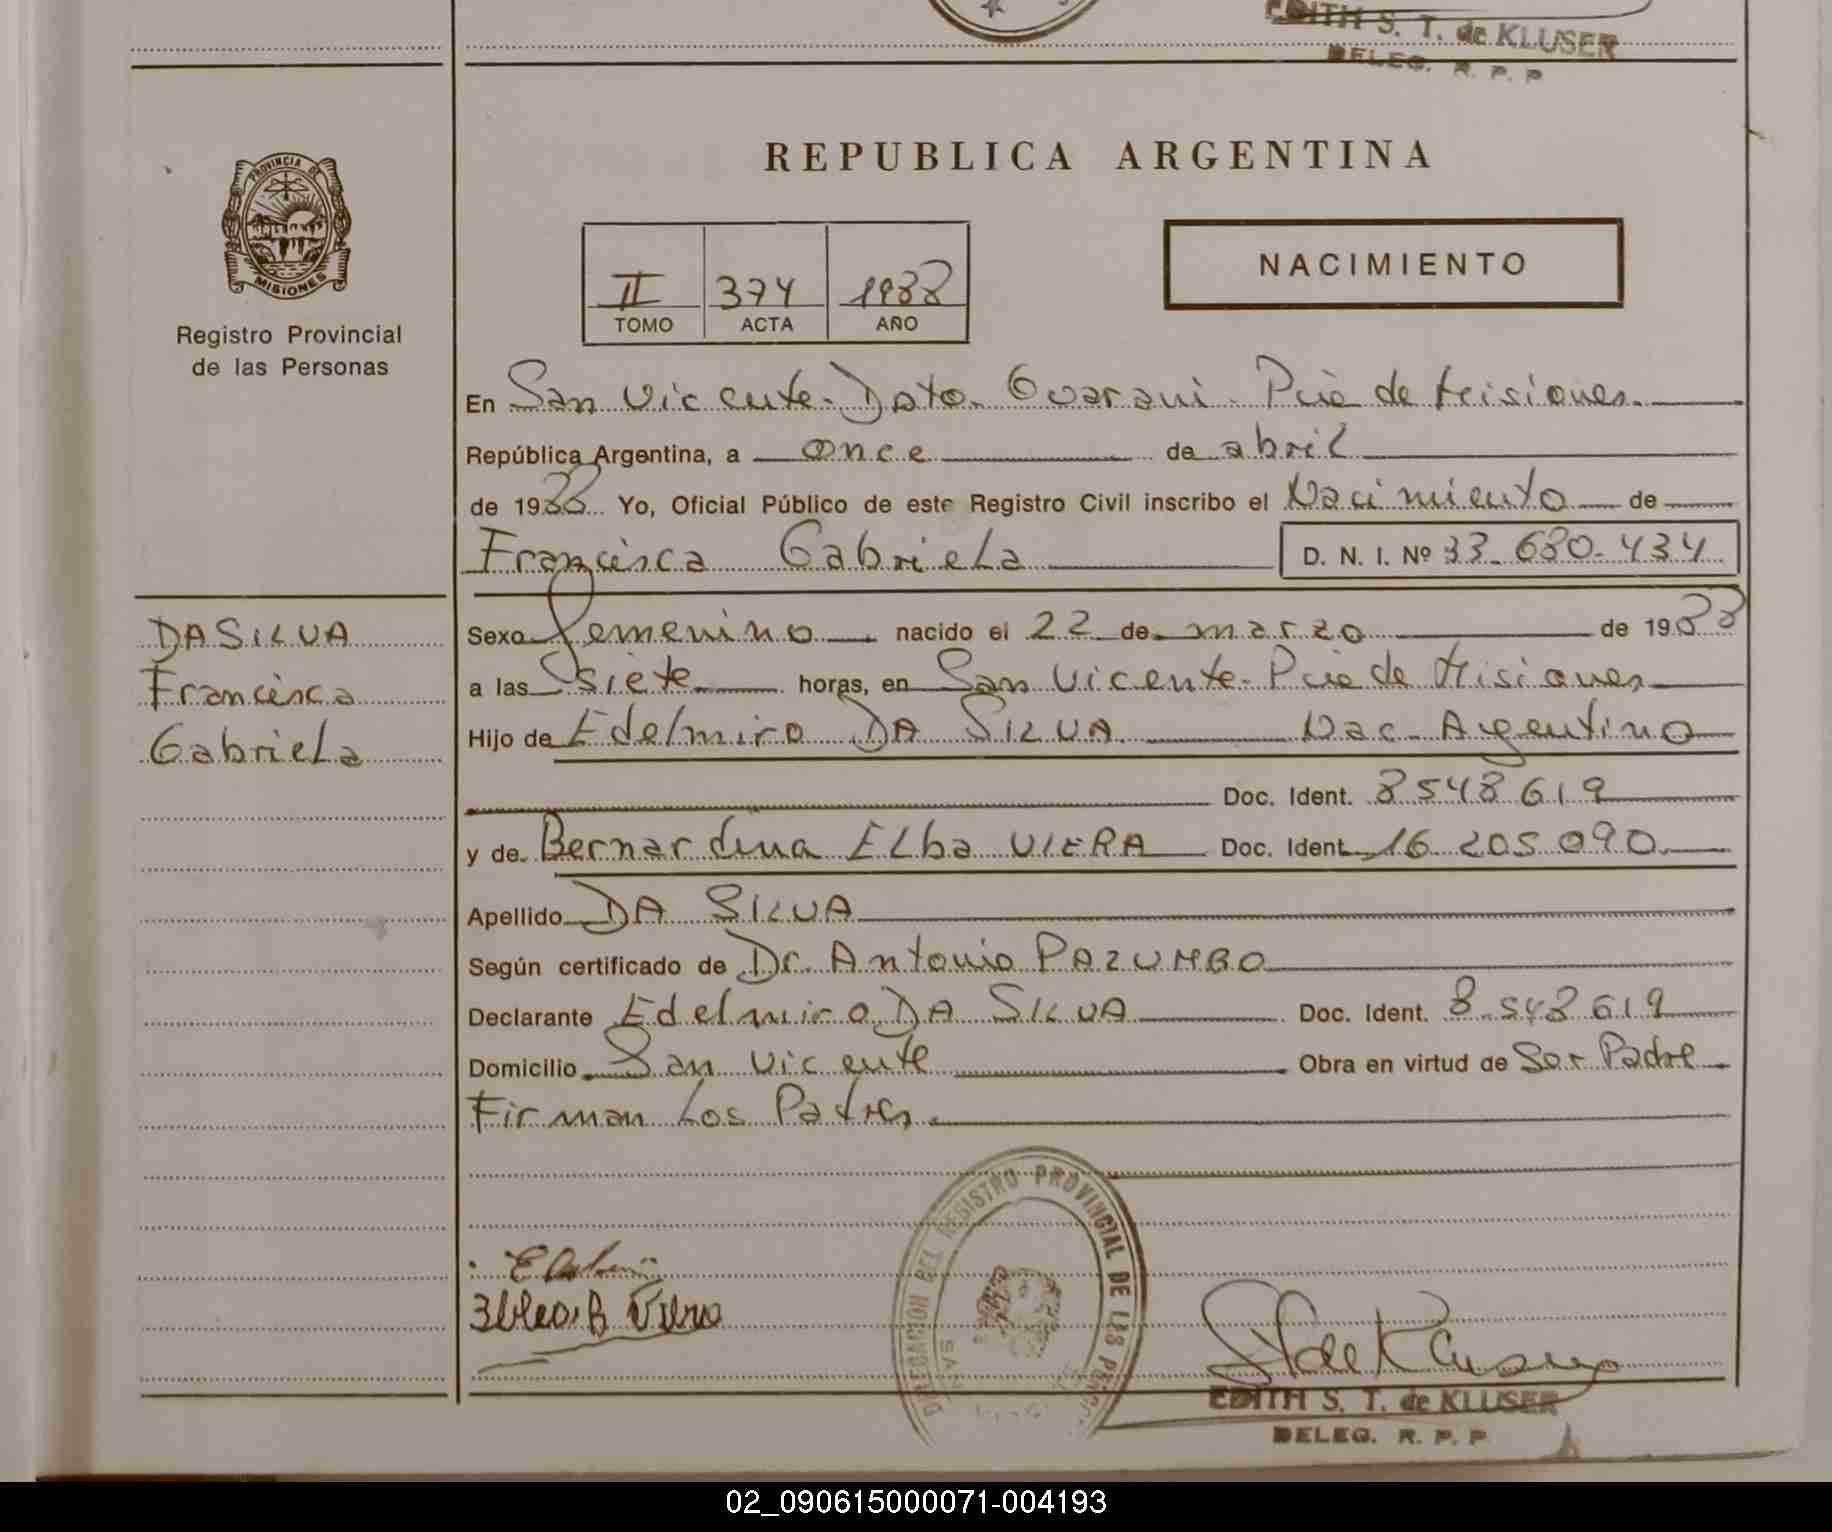 EDITH S. T. de KLUSER
DELEG. R. P. P
PROVINCIA DE
MISIONES
Registro Provincial
de las Personas
REPUBLICA ARGENTINA
II 374 1988
TOMO ACTA AÑO
NACIMIENTO
En San Vicente - Dpto. Guarani - Pcia de Misiones.
República Argentina, a once de abril
de 1988 Yo, Oficial Público de este Registro Civil inscribo el Nacimiento de
Francisca Gabriela D. N. I. Nº 33-680-434
DA SILVA
Francisca
Gabriela
Sexo femenino nacido el 22 de marzo de 1988
a las siete horas, en San Vicente - Pcia de Misiones
Hijo de Edelmiro DA SILVA Nac. Argentino
Doc. Ident. 8548619
y de Bernardina Elba VIERA Doc. Ident. 16 205 090
Apellido DA SILVA
Según certificado de Dr. Antonio PAZUMBO
Declarante Edelmiro DA SILVA Doc. Ident. 8.548619
Domicilio San Vicente Obra en virtud de Ser Padre
Firman Los Padres.
DELEGACION DEL REGISTRO PROVINCIAL DE LAS
SAN
EDITH S. T. de KLUSER
DELEG. R. P. P
02_090615000071-004193